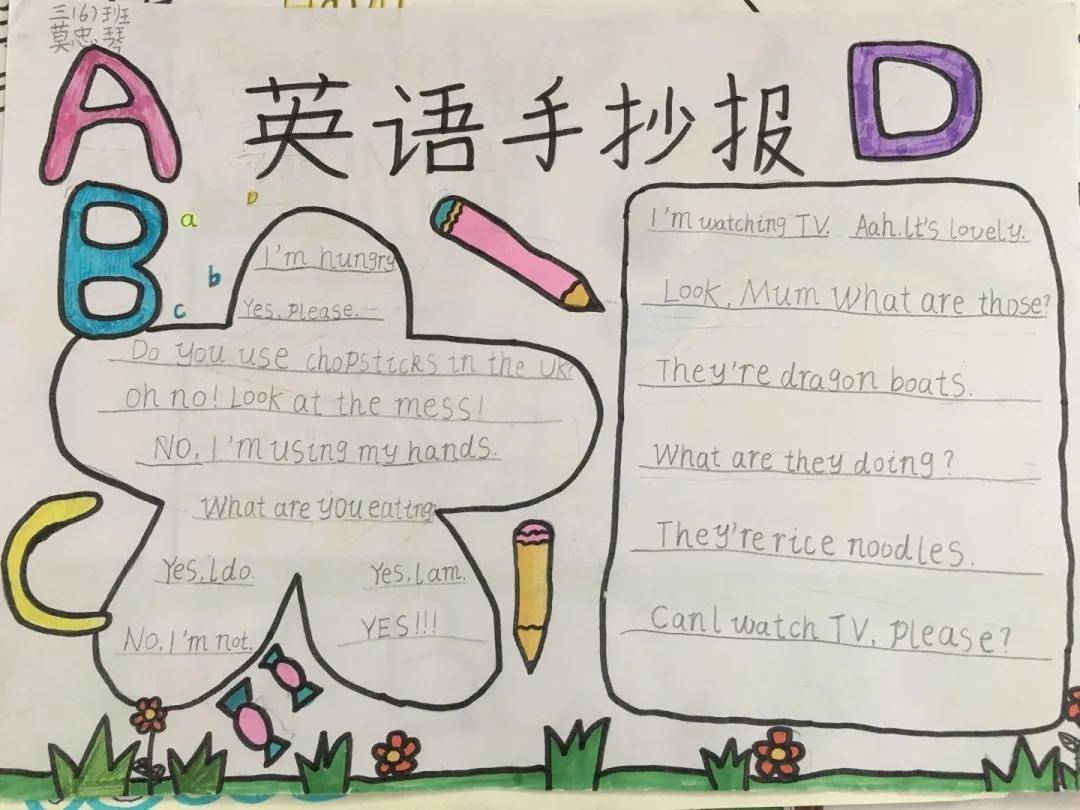 三(6)班
莫忠琴
A
英语手抄报
D
B
a
b
c
D
I'm hungry
Yes, please.
Do you use chopsticks in the UK?
oh no! Look at the mess!
No, I'm using my hands.
What are you eating
Yes, I do.
Yes, I am.
No, I'm not.
YES!!!
C
I'm watching TV. Aah. It's lovely.
Look, Mum what are those?
They're dragon boats.
What are they doing?
They're rice noodles.
Can I watch TV, please?